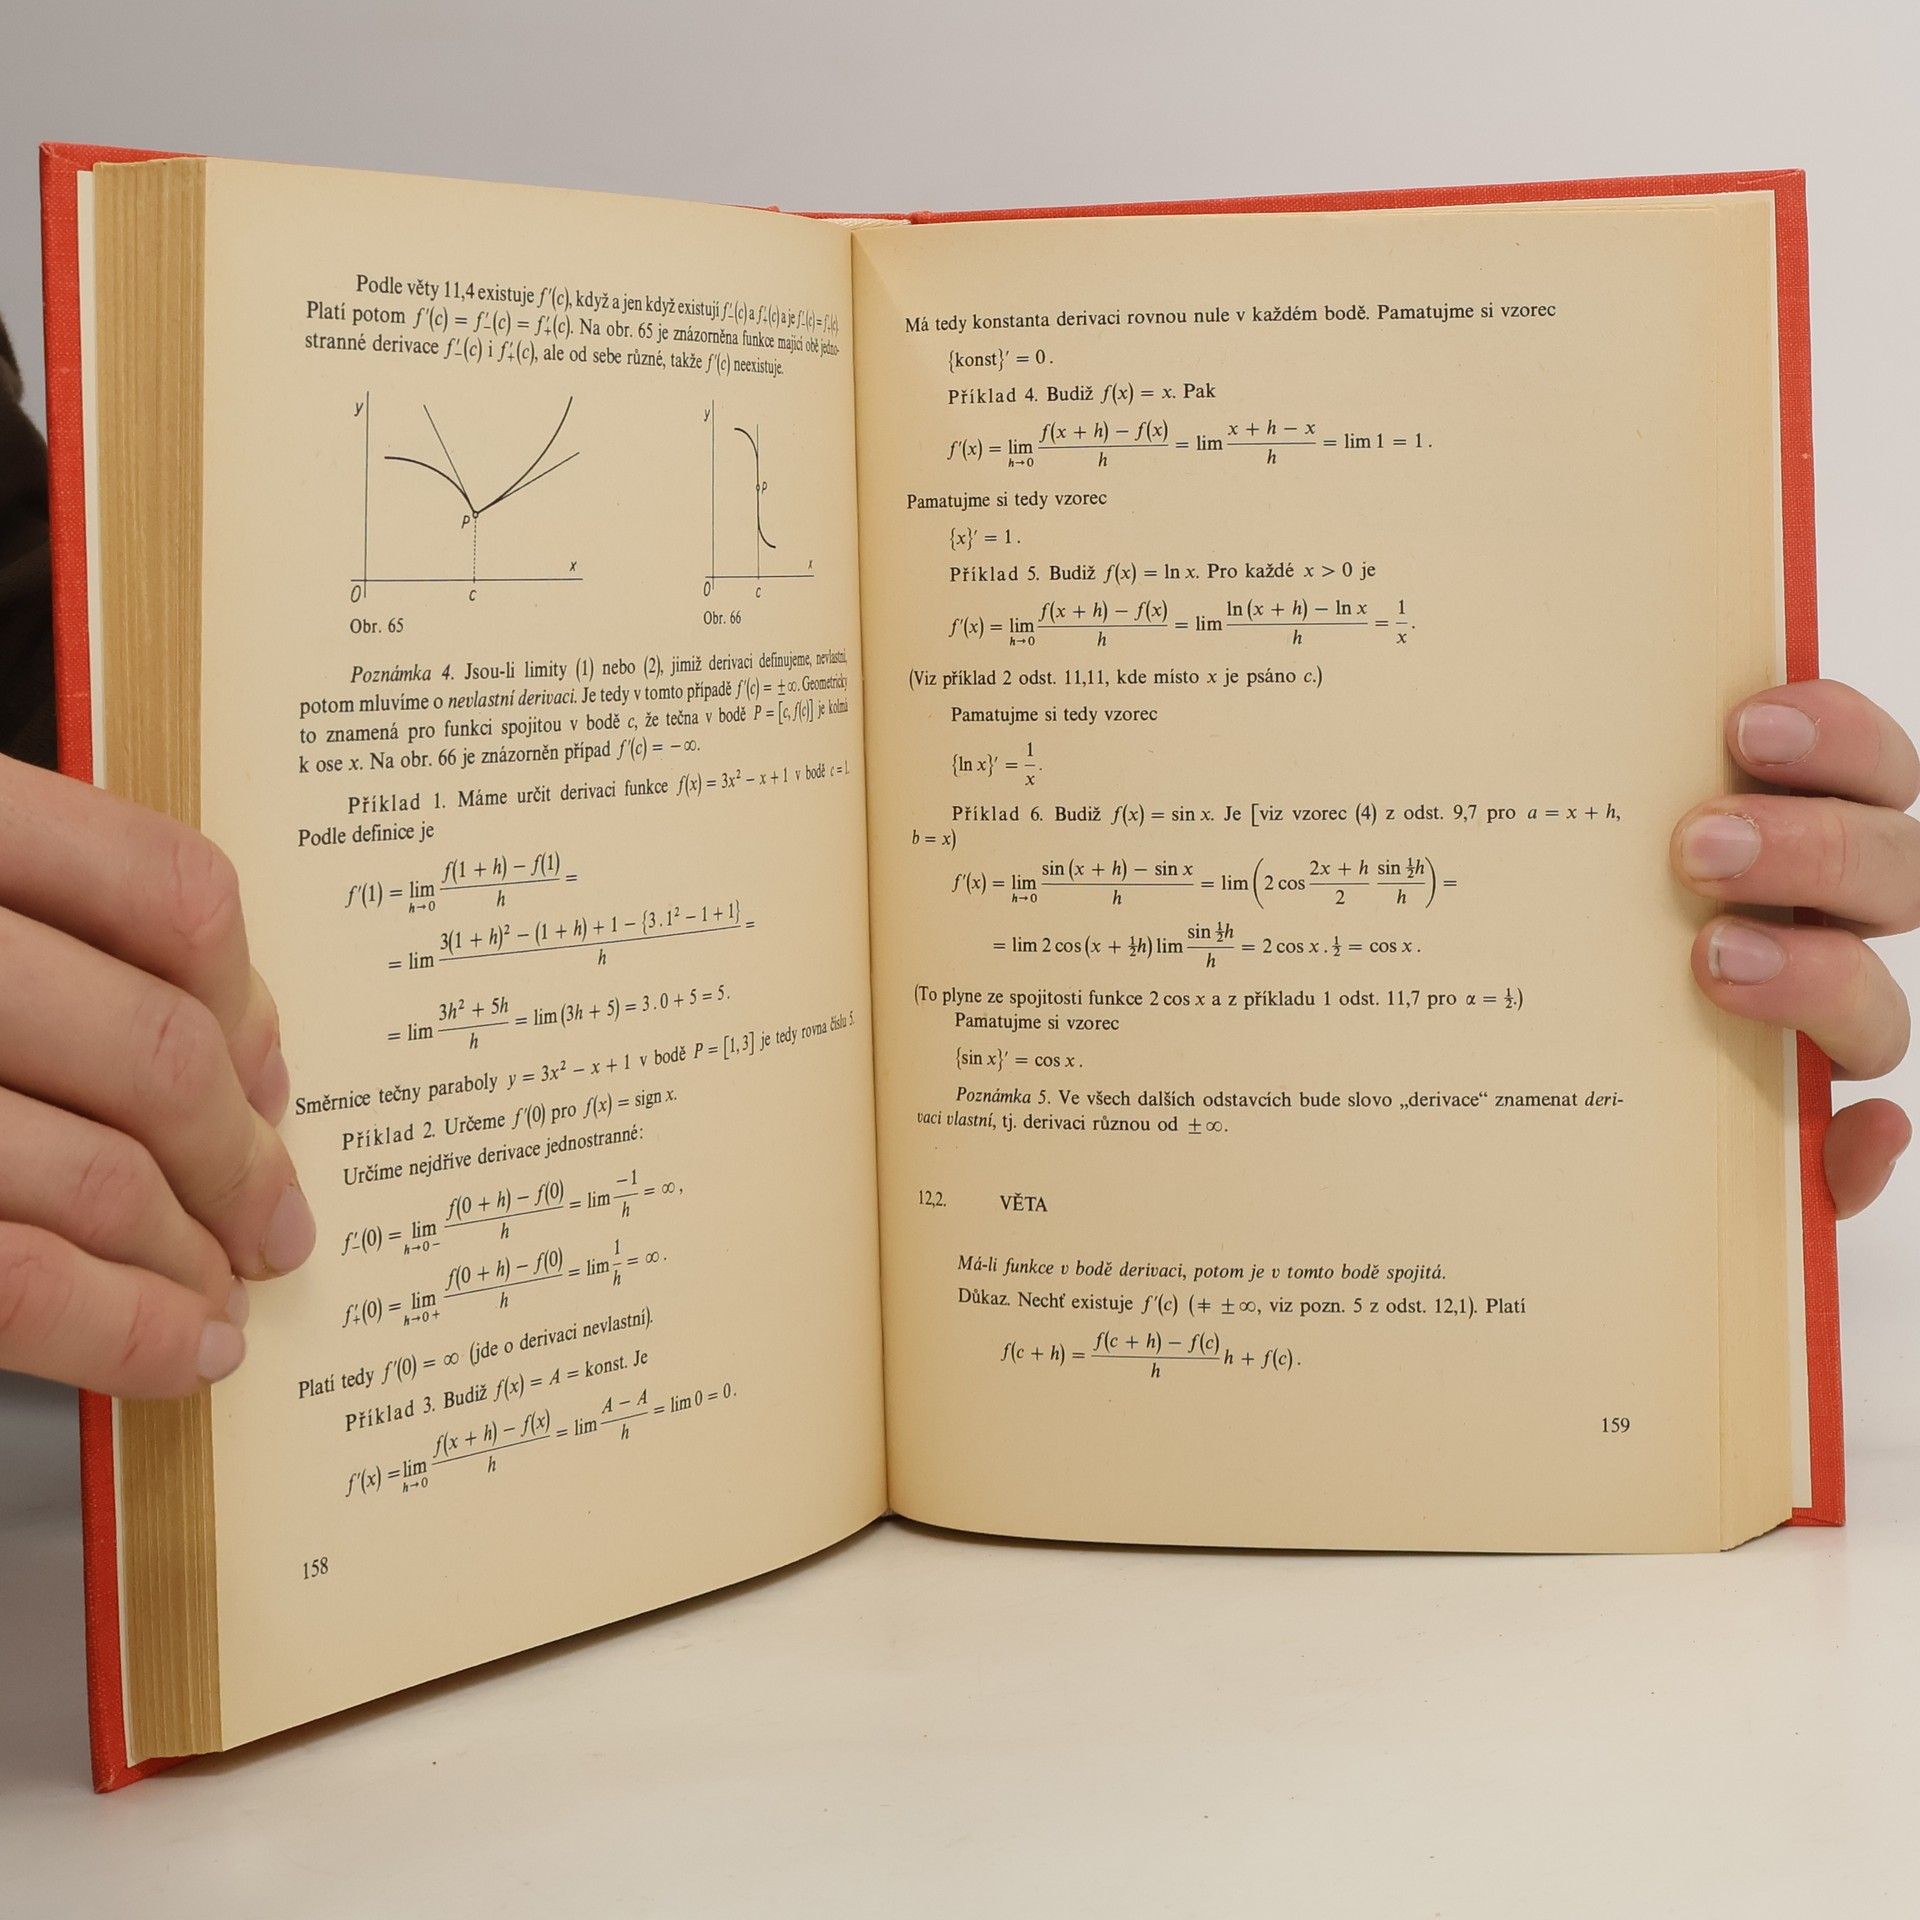 Podle věty 11,4 existuje f′(c), když a jen když existují f′₋(c) a f′₊(c) a je f′₋(c) = f′₊(c).
Platí potom f′(c) = f′₋(c) = f′₊(c). Na obr. 65 je znázorněna funkce mající obě jedno-
stranné derivace f′₋(c) i f′₊(c), ale od sebe různé, takže f′(c) neexistuje.
y
P
x
O
c
Obr. 65
y
P
x
O
c
Obr. 66
Poznámka 4. Jsou-li limity (1) nebo (2), jimiž derivaci definujeme, nevlastní,
potom mluvíme o nevlastní derivaci. Je tedy v tomto případě f′(c) = ±∞. Geometricky
to znamená pro funkci spojitou v bodě c, že tečna v bodě P = [c, f(c)] je kolmá
k ose x. Na obr. 66 je znázorněn případ f′(c) = −∞.
Příklad 1. Máme určit derivaci funkce f(x) = 3x² − x + 1 v bodě c = 1.
Podle definice je
f′(1) = lim_{h→0} (f(1 + h) − f(1))/h =
= lim (3(1 + h)² − (1 + h) + 1 − {3.1² − 1 + 1})/h =
= lim (3h² + 5h)/h = lim (3h + 5) = 3.0 + 5 = 5.
Směrnice tečny paraboly y = 3x² − x + 1 v bodě P = [1, 3] je tedy rovna číslu 5.
Příklad 2. Určeme f′(0) pro f(x) = sign x.
Určíme nejdříve derivace jednostranné:
f′₋(0) = lim_{h→0−} (f(0 + h) − f(0))/h = lim −1/h = ∞,
f′₊(0) = lim_{h→0+} (f(0 + h) − f(0))/h = lim 1/h = ∞.
Platí tedy f′(0) = ∞ (jde o derivaci nevlastní).
Příklad 3. Budiž f(x) = A = konst. Je
f′(x) = lim_{h→0} (f(x + h) − f(x))/h = lim (A − A)/h = lim 0 = 0.
158
Má tedy konstanta derivaci rovnou nule v každém bodě. Pamatujme si vzorec
{konst}′ = 0.
Příklad 4. Budiž f(x) = x. Pak
f′(x) = lim_{h→0} (f(x + h) − f(x))/h = lim (x + h − x)/h = lim 1 = 1.
Pamatujme si tedy vzorec
{x}′ = 1.
Příklad 5. Budiž f(x) = ln x. Pro každé x > 0 je
f′(x) = lim_{h→0} (f(x + h) − f(x))/h = lim (ln (x + h) − ln x)/h = 1/x.
(Viz příklad 2 odst. 11,11, kde místo x je psáno c.)
Pamatujme si tedy vzorec
{ln x}′ = 1/x.
Příklad 6. Budiž f(x) = sin x. Je [viz vzorec (4) z odst. 9,7 pro a = x + h,
b = x)
f′(x) = lim_{h→0} (sin (x + h) − sin x)/h = lim (2 cos (2x + h)/2 (sin ½h)/h) =
= lim 2 cos (x + ½h) lim (sin ½h)/h = 2 cos x . ½ = cos x.
(To plyne ze spojitosti funkce 2 cos x a z příkladu 1 odst. 11,7 pro α = ½.)
Pamatujme si vzorec
{sin x}′ = cos x.
Poznámka 5. Ve všech dalších odstavcích bude slovo „derivace“ znamenat deri-
vaci vlastní, tj. derivaci různou od ±∞.
12,2. VĚTA
Má-li funkce v bodě derivaci, potom je v tomto bodě spojitá.
Důkaz. Nechť existuje f′(c) (≠ ±∞, viz pozn. 5 z odst. 12,1). Platí
f(c + h) = (f(c + h) − f(c))/h h + f(c).
159